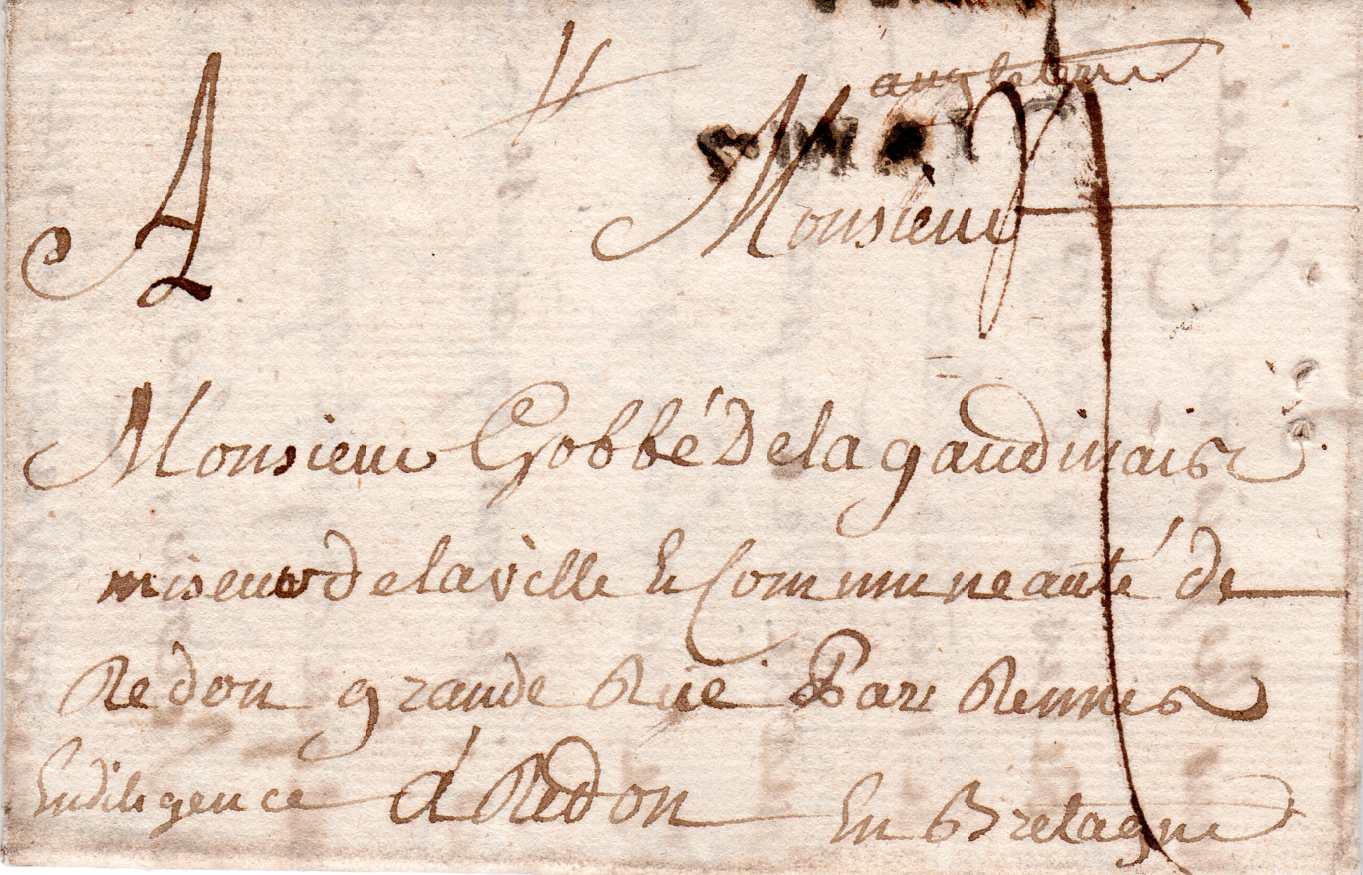 angleterre
A Monsieur
Monsieur Gobbé De la gaudinais
miseur de la ville Et Communeauté de
Redon grande Rüe Par Rennes
En diligence á Redon En Bretagne